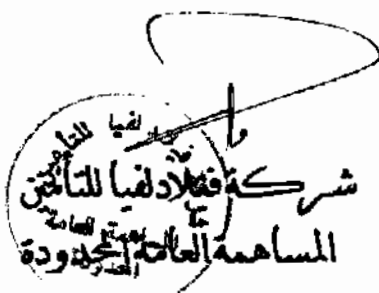 شركة فيلادلفيا للتأمين
المساهمة العامة المحدودة